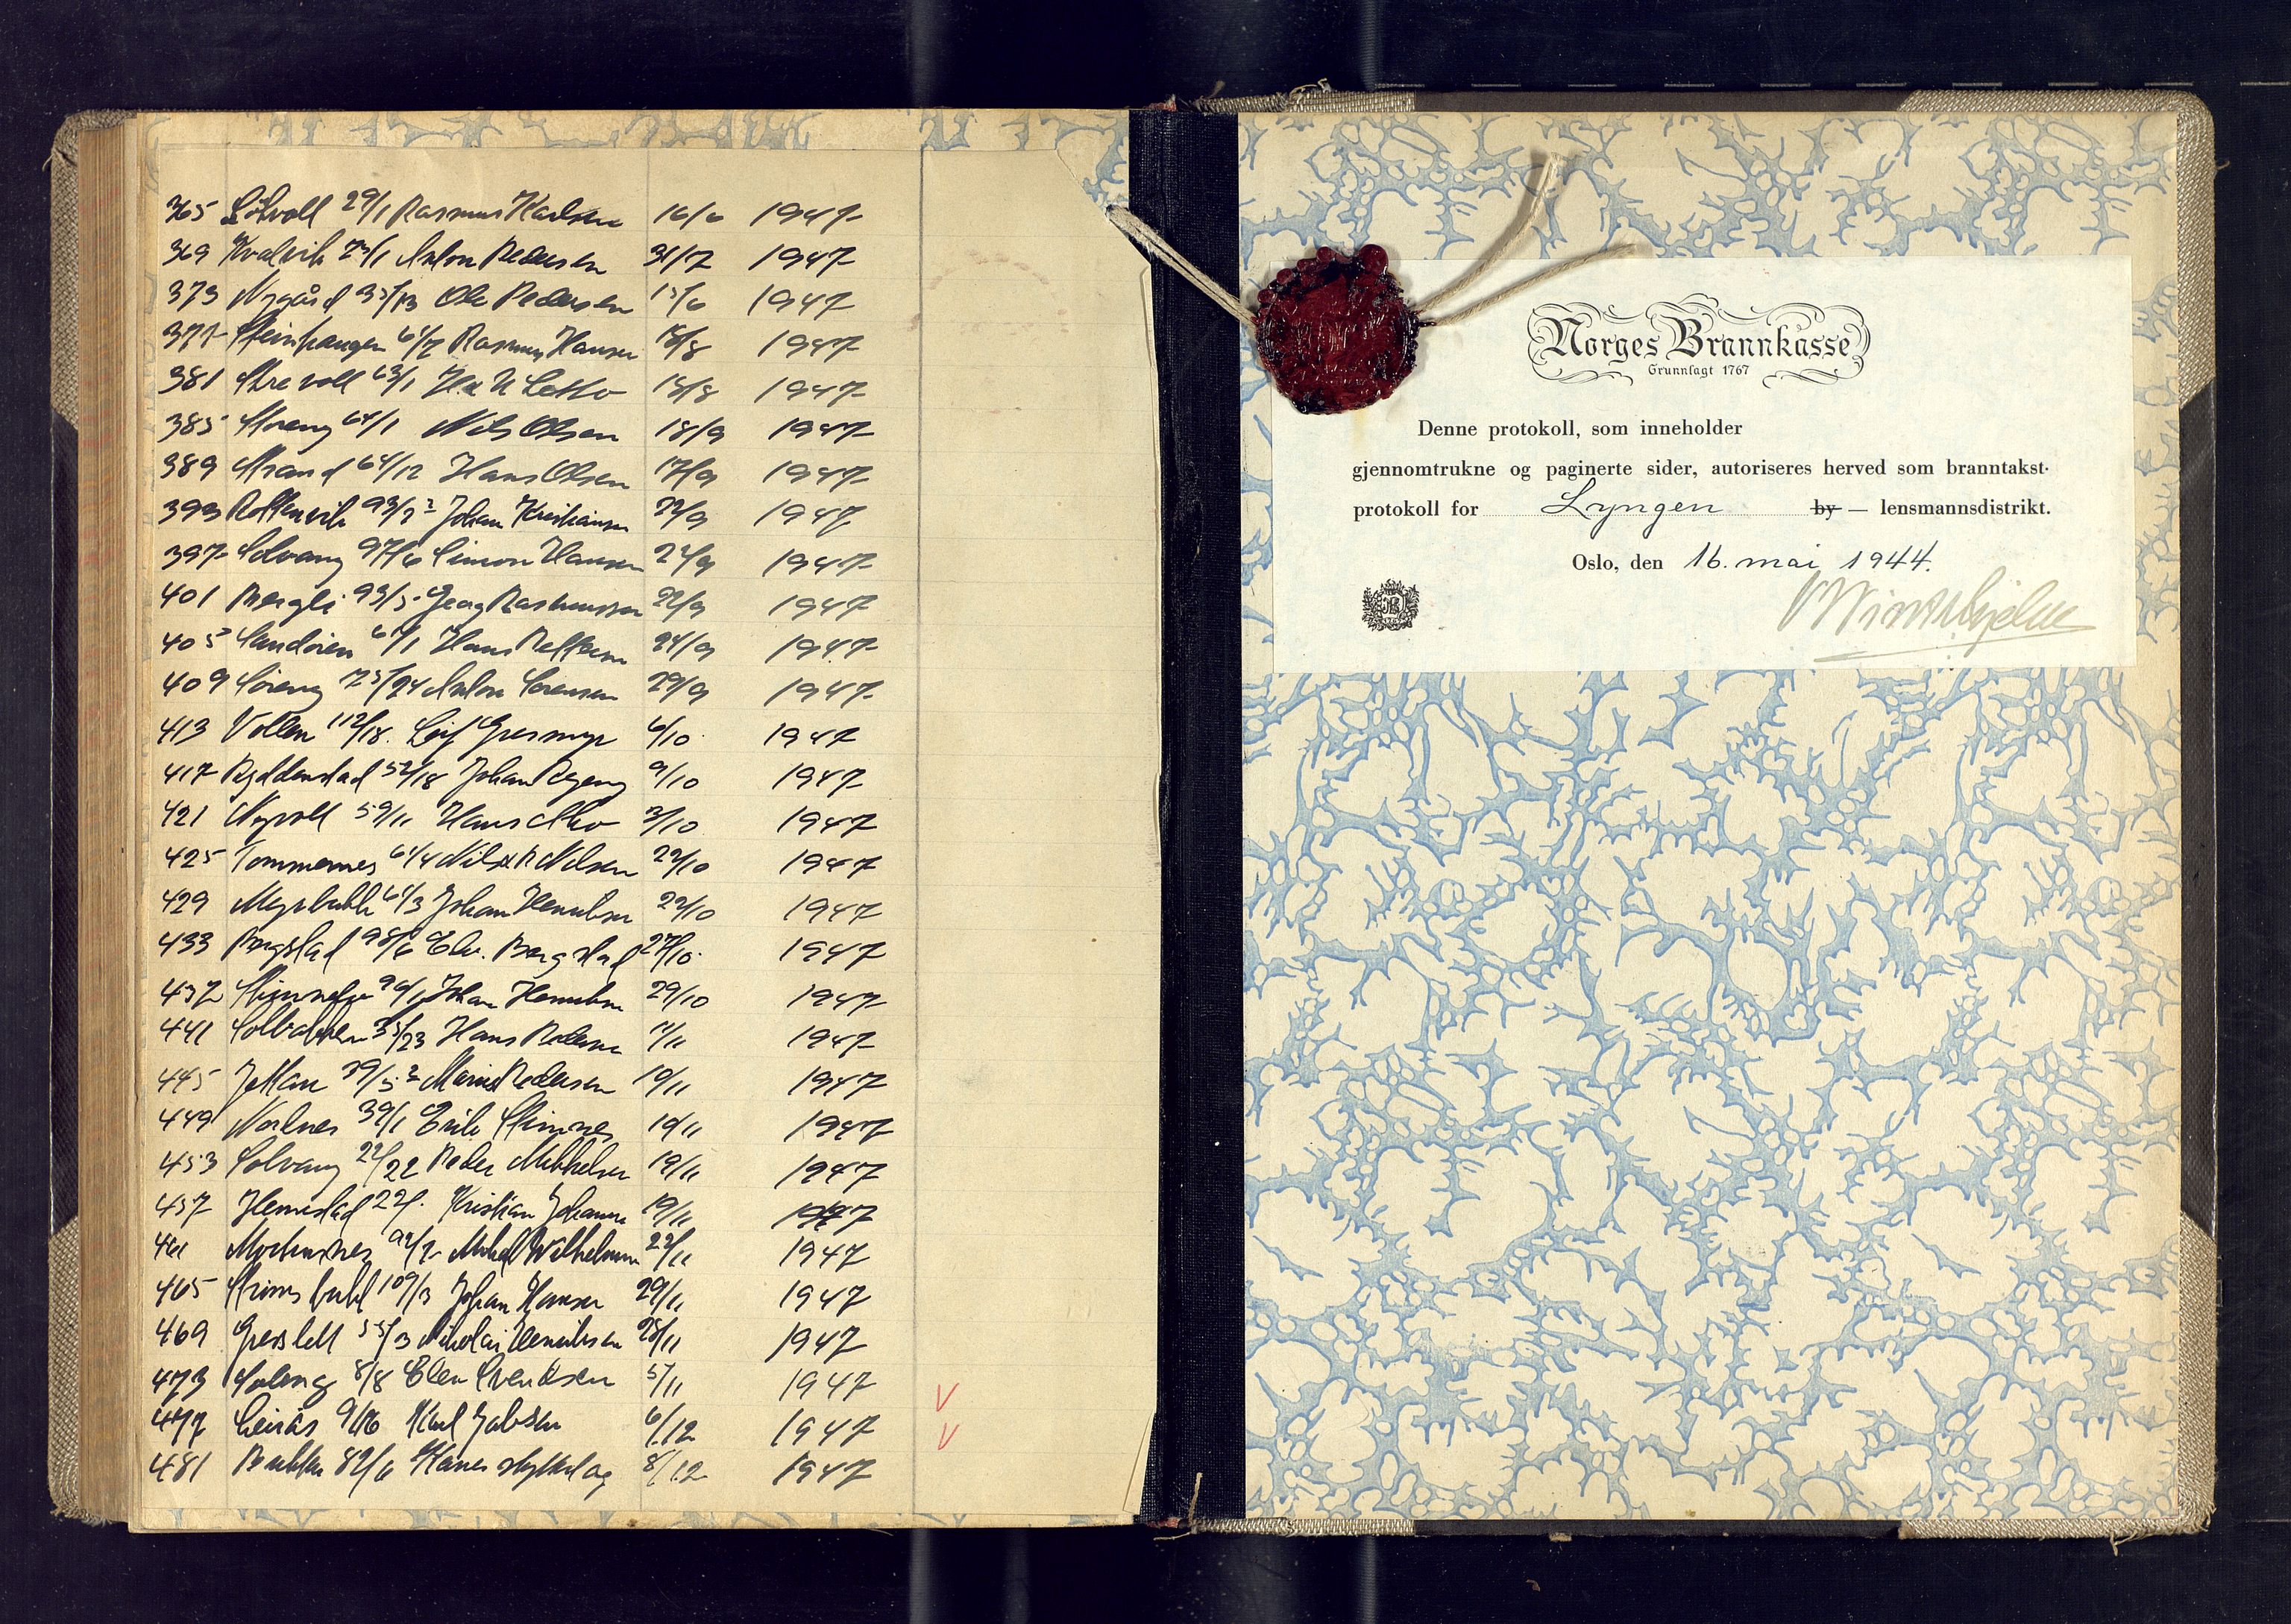 365 Solvoll 29/1 Rasmus Karlsen 16/6 1947
369 Kvalvik 73/1 Anton Pedersen 31/7 1947
373 Nygård 35/13 Ole Pedersen 15/6 1947
377 Steinhaugen 61/7 Rasmus Hansen 18/8 1947
381 63/1 18/8 1947
385 Moreng 64/1 Nils Olsen 18/9 1947
389 Strand 64/12 Hans Olsen 17/9 1947
393 Rottenvik Johan Kristiansen 22/9 1947
397 Solvang 97/6 Simon Hansen 22/9 1947
401 Bergli 93/5 Georg Rasmussen 22/9 1947
405 Sandøren Hans 24/9 1947
409 Søreng 75/24 Anton Sørensen 29/9 1947
413 Vollen 112/18. Leif Grønmyr 6/10 1947
417 52/18 Johan 9/10 1947
421 Nyvoll 59/11 Hans 3/10 1947
425 Tommernes 61/4 Nils R Nilsen 22/10 1947
429 Myrbakk 61/3 Johan Henriksen 22/10 1947
433 Bergstad 98/6 Edv. Bergstad 27/10 1947
437 Johan Henriksen 29/10 1947
441 Solbakken 35/23 Hans Pedersen 11/11 1947
445 Jettan Marius Pedersen 19/11 1947
449 Nordnes 39/1 Erik Steinnes 19/11 1947
453 Solvang 22/22 Peder Mikkelsen 19/11 1947
457 Heimstad 22/. Kristian Johansen 19/11 1947
461 Mikal Wilhelmsen 22/11 1947
465 109/13 Johan Hansen 29/11 1947
469 55/3 Nikolai Henriksen 28/11 1947
473 Soleng 8/8 Elen Svendsen 5/11 1947 V
477 Leirås 9/16 Karl Jakobsen 6/12 1947 V
481 Brekka 82/6 8/12 1947
Norges Brannkasse
Grunnlagt 1767
Denne protokoll, som inneholder
gjennomtrukne og paginerte sider, autoriseres herved som branntakst-
protokoll for Lyngen by — lensmannsdistrikt.
Oslo, den 16. mai 1944.